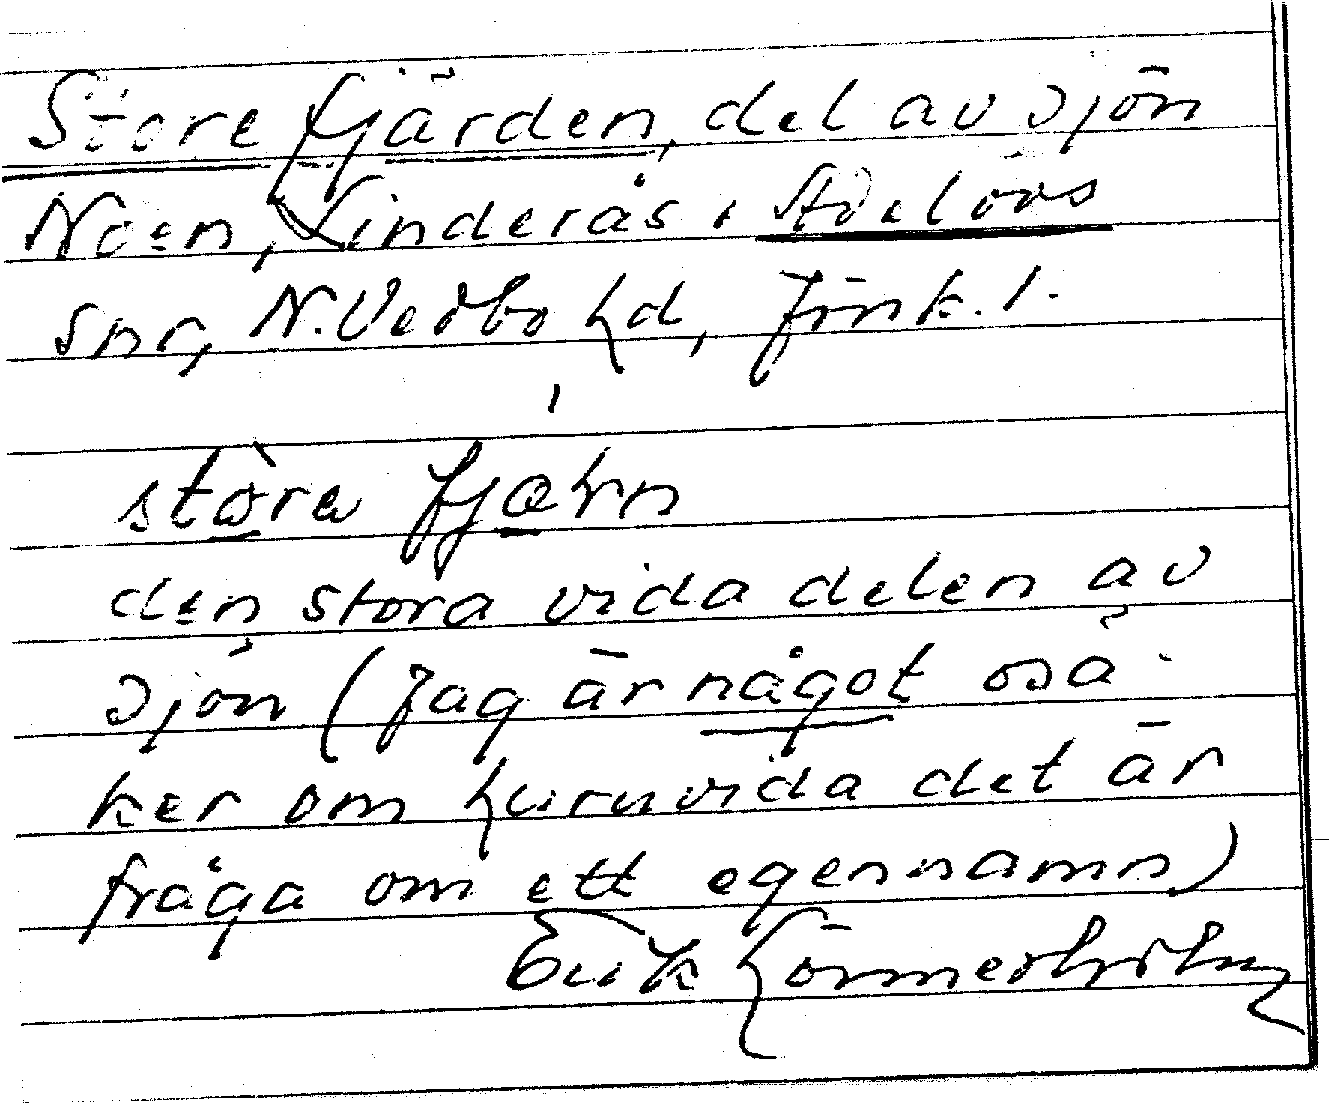 Store fjärden, del av sjön
Noen, Linderås i
snr, N. Vedbo hd, Jönk. l.
store fjærn
den stora vida delen av
sjön (Jag är något oså
ker om huruvida det är
fråga om ett egennamn)